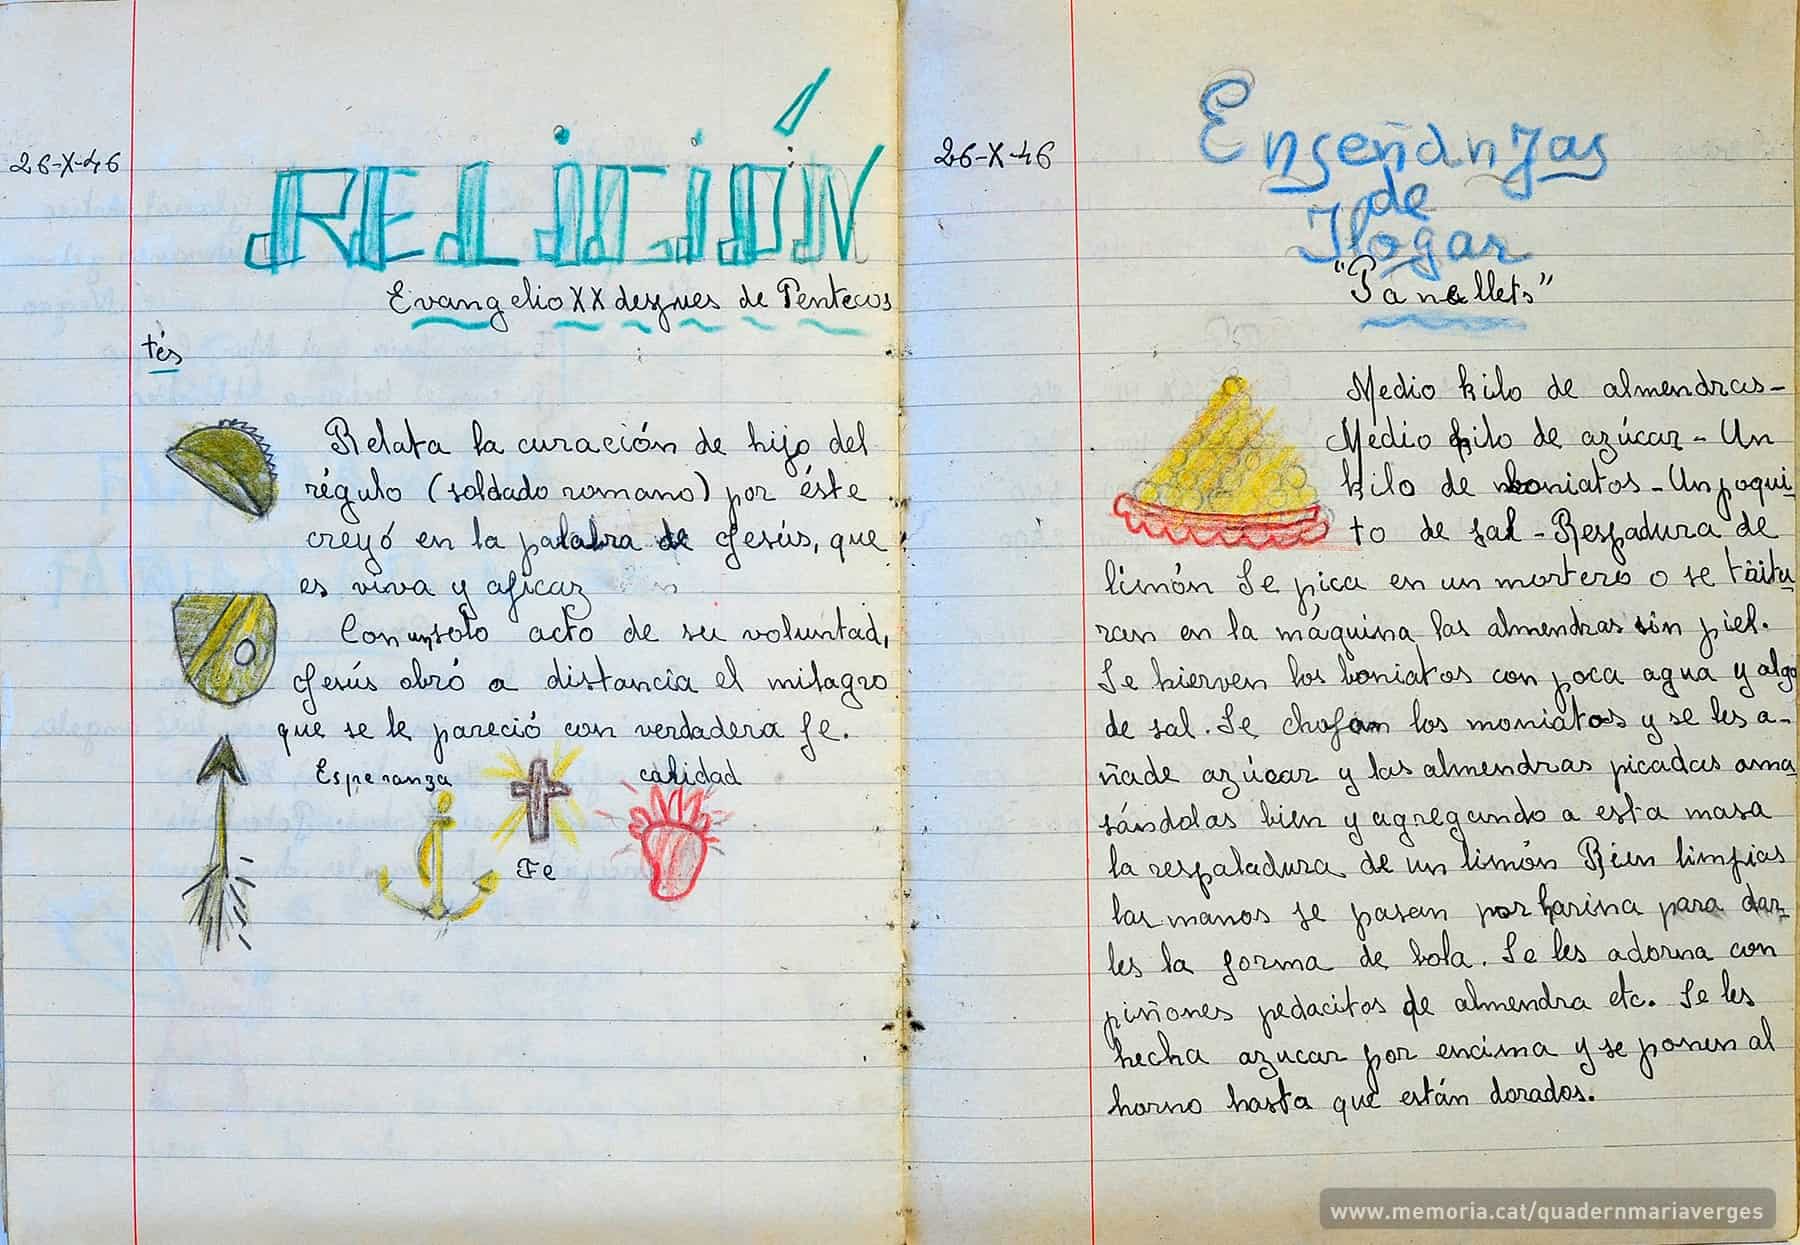 26-X-46
RELIGIÓN
Evangelio XX despues de Pentecos
tés
Relata la curación de hijo del
régulo (soldado romano) por éste
creyó en la palabra de Jesús, que
es viva y aficaz
Con un solo acto de su voluntad,
Jesús obró a distancia el milagro
que se le pareció con verdadera fe.
Esperanza
caridad
Fe
26-X-46
Enseñanzas
de
Hogar
"Panellets"
Medio kilo de almendras-
Medio kilo de azúcar - Un
kilo de boniatos - Un poqui
to de sal - Respadura de
limón Se pica en un mortero o se tritu
ran en la máquina las almendras sin piel.
Se hierven los boniatos con poca agua y algo
de sal. Se chafan los moniatos y se les a-
ñade azúcar y las almendras picadas ama
sándolas bien y agregando a esta masa
la respaladura de un limón Bien limpias
las manos se pasan por harina para dar
les la forma de bola. Se les adorna con
piñones pedacitos de almendra etc. Se les
hecha azucar por encima y se ponen al
horno hasta que están dorados.
www.memoria.cat/quadernmariaverges